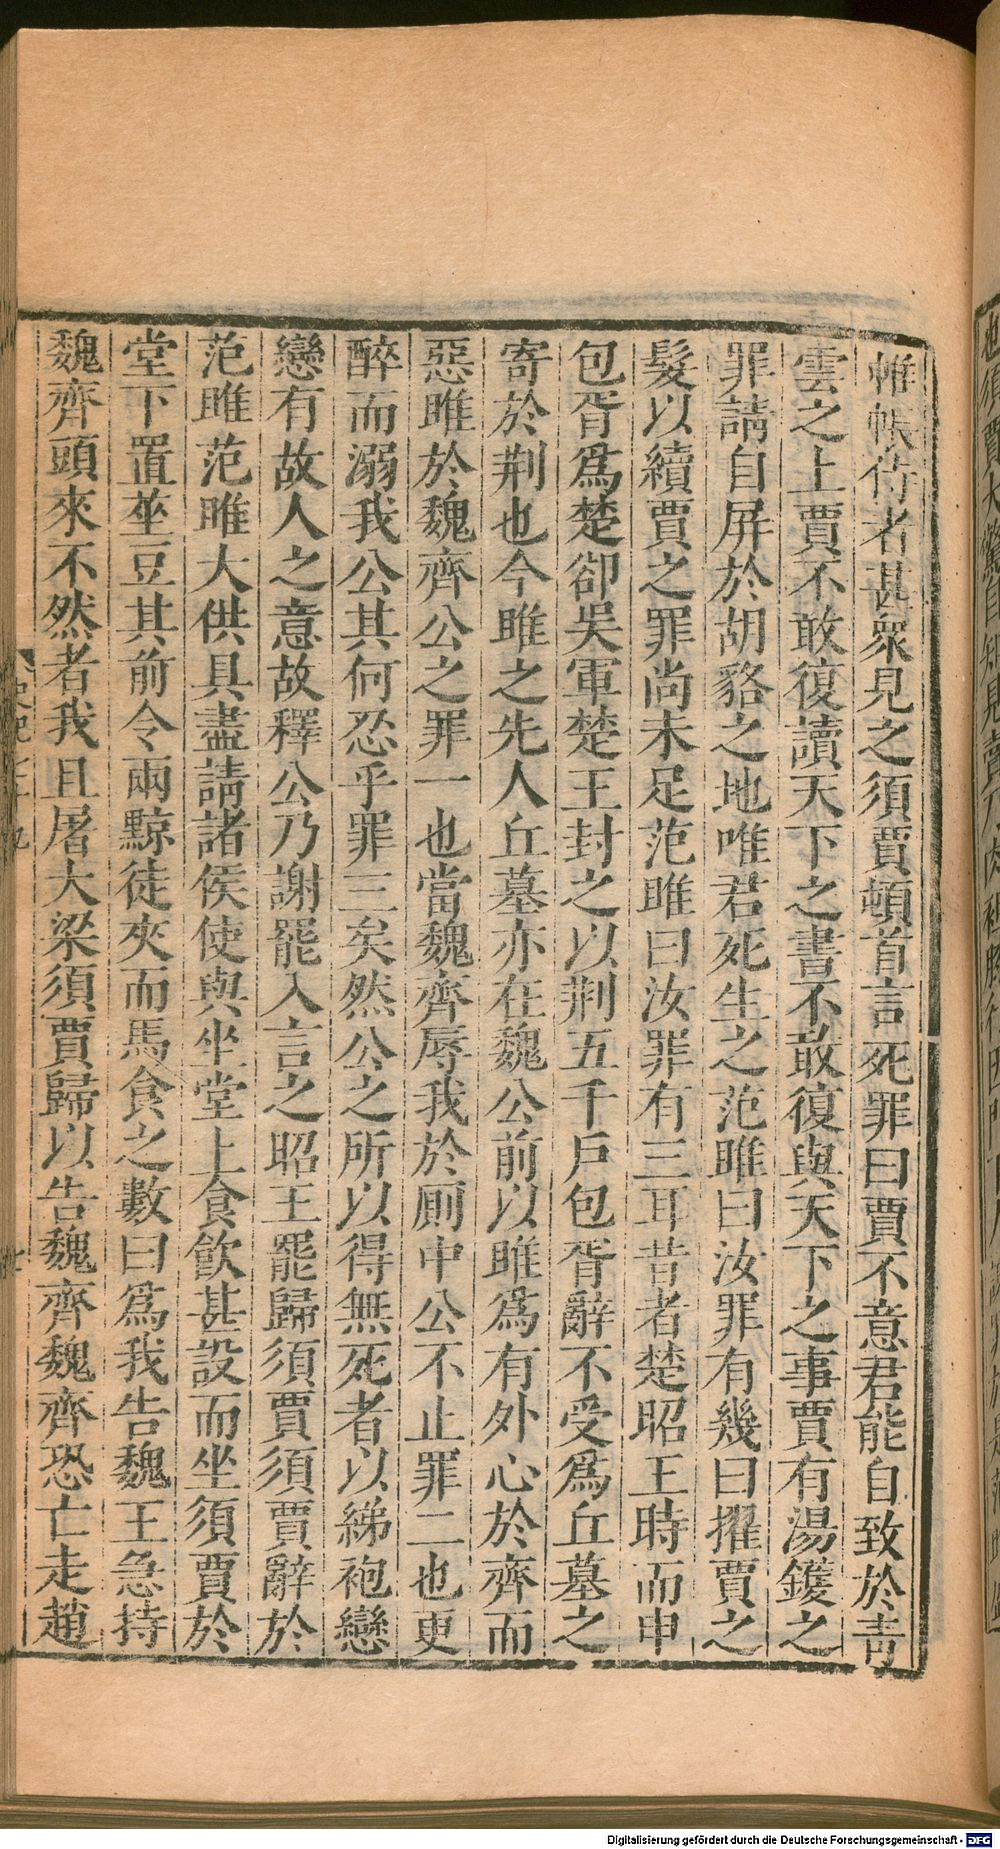 帷帳侍者甚眾見之須賈頓首言死罪曰賈不意君能自致於青
雲之上賈不敢復讀天下之書不敢復與天下之事賈有湯鑊之
罪請自屏於胡貉之地唯君死生之范雎曰汝罪有幾曰擢賈之
髮以續賈之罪尚未足范雎曰汝罪有三耳昔者楚昭王時而申
包胥爲楚卻吳軍楚王封之以荆五千戶包胥辭不受爲丘墓之
寄於荆也今雎之先人丘墓亦在魏公前以雎爲有外心於齊而
惡雎於魏齊公之罪一也當魏齊辱我於厠中公不止罪二也更
醉而溺我公其何忍乎罪三矣然公之所以得無死者以綈袍戀
戀有故人之意故釋公乃謝罷入言之昭王罷歸須賈須賈辭於
范雎范雎大供具盡請諸侯使與坐堂上食飲甚設而坐須賈於
堂下置莝豆其前令兩黥徒夾而馬食之數曰爲我告魏王急持
魏齊頭來不然者我且屠大梁須賈歸以告魏齊魏齊恐亡走趙
Digitalisierung gefördert durch die Deutsche Forschungsgemeinschaft - DFG